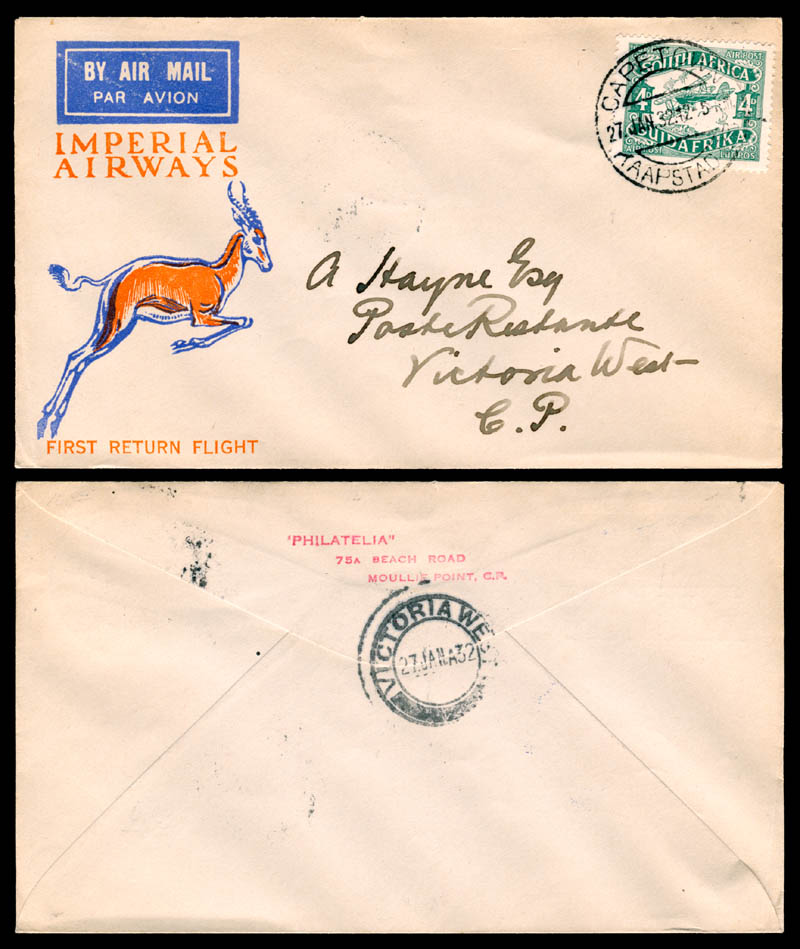 BY AIR MAIL
PAR AVION
IMPERIAL
AIRWAYS
FIRST RETURN FLIGHT
CAPE TOWN
27 JAN 32 12-5
KAAPSTAD
AIR POST
SOUTH AFRICA
4D 4D
SUIDAFRIKA
LUGPOS
A Hayne Esq
Poste Restante
Victoria West
C.P.
"PHILATELIA"
75A BEACH ROAD
MOULLIE POINT, C.P.
VICTORIA WES
27 JAN A 32